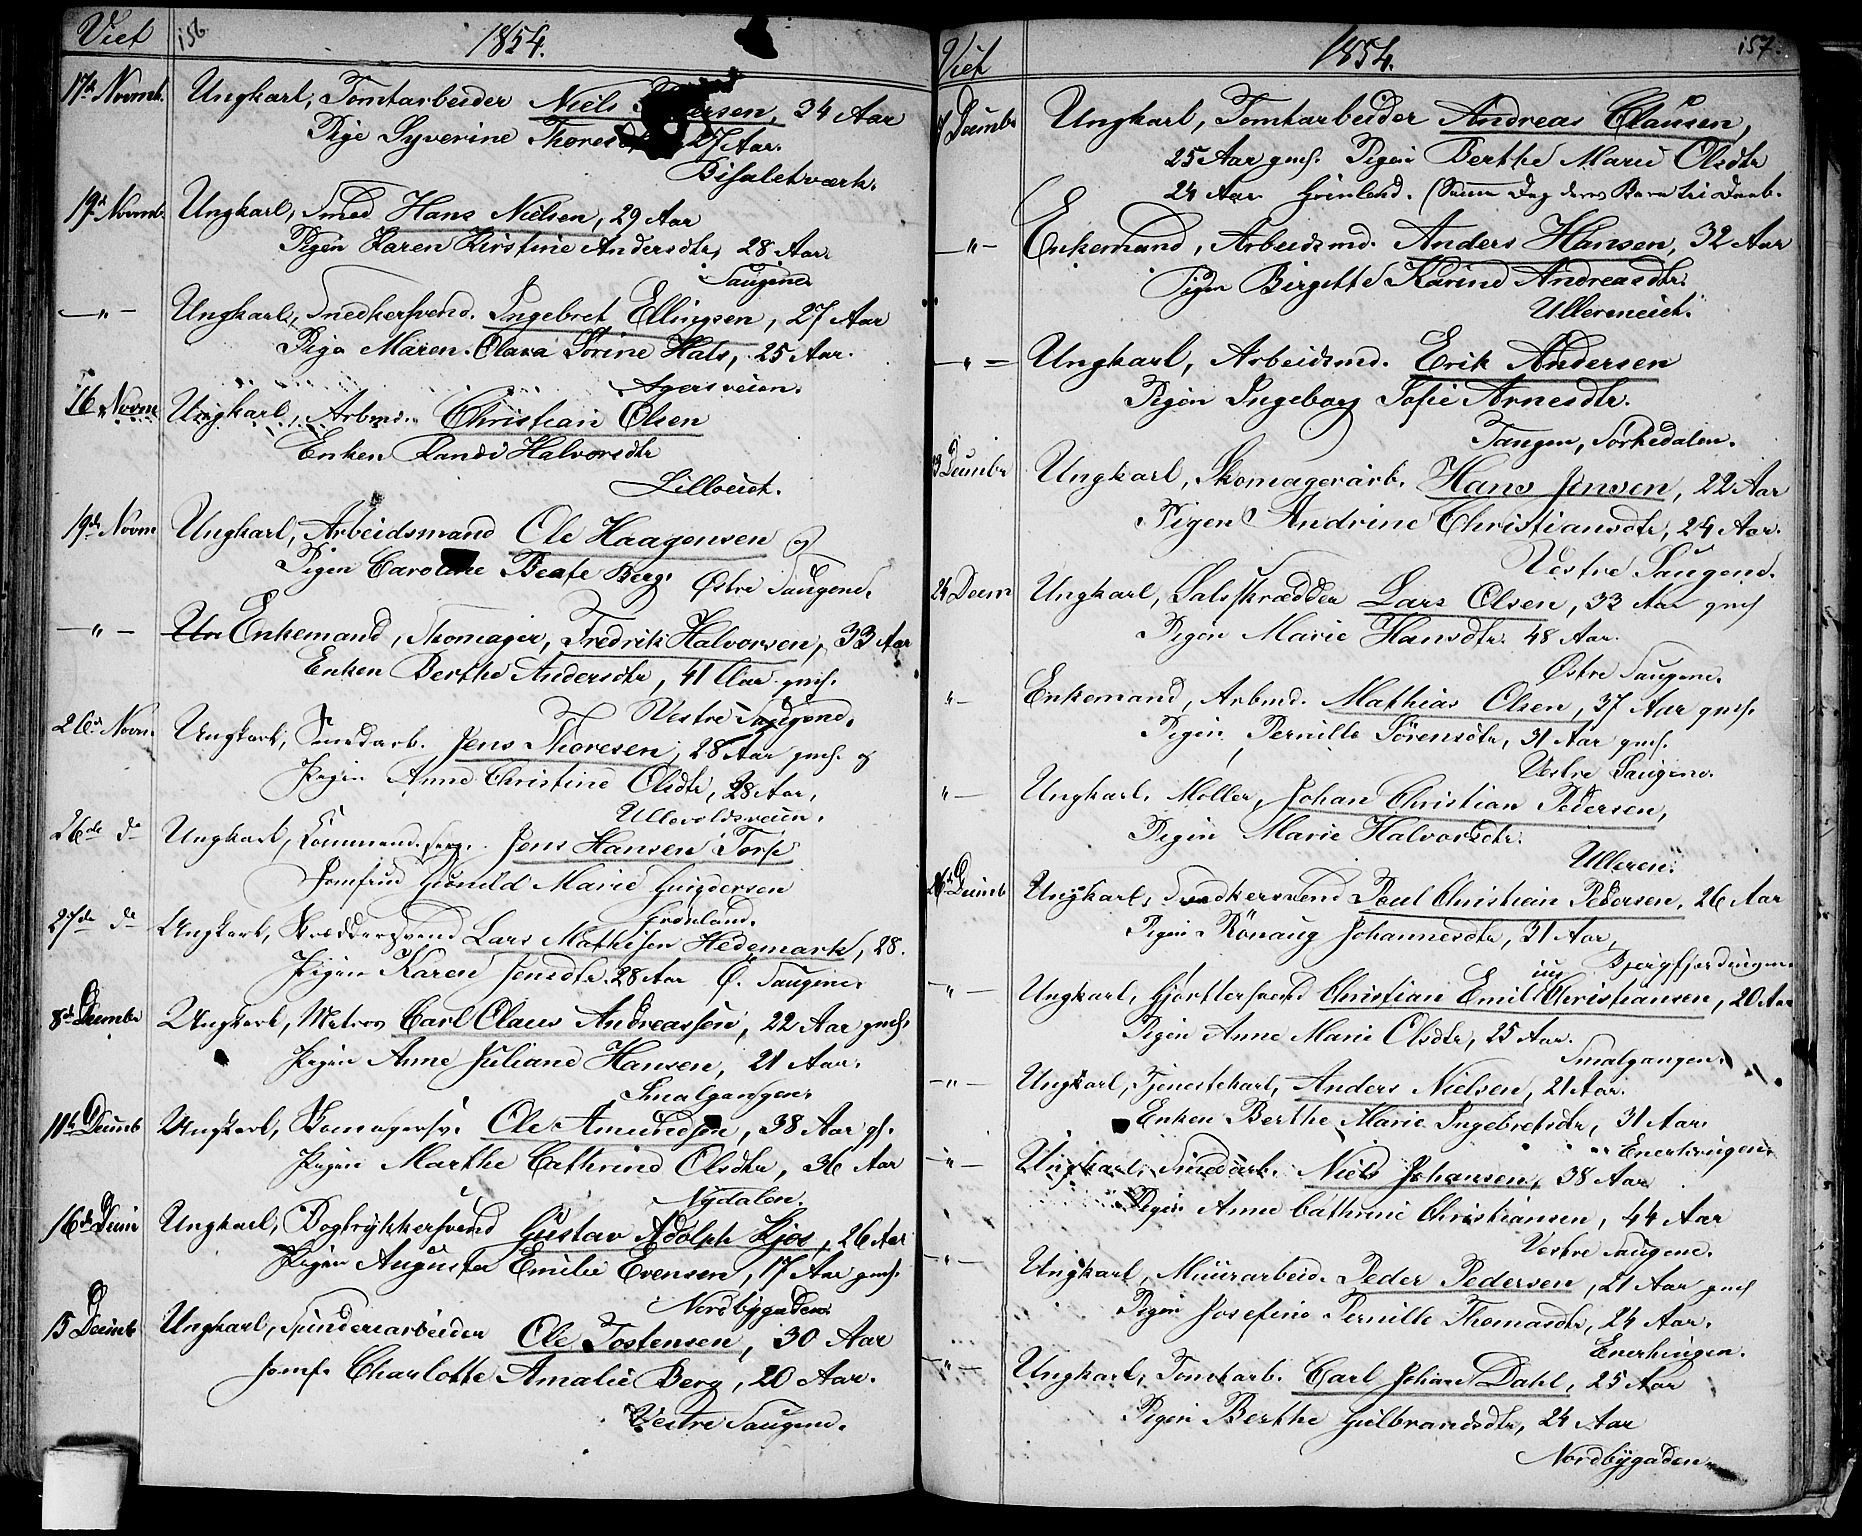 Viet 156 1854.
17de Novmb. Ungkarl, Tomtarbeider Niels 34 Aar
Pige Syverine 27 Aar.
19de Novmb. Ungkarl, Smed Hans Nielsen, 29 Aar
Pigen Karen Kirstine Andersdtr, 28 Aar.
Saugene
—"— Ungkarl, Snedkersvend. Ingebret Ellingsen, 27 Aar
Pige Maren Olava Sorine Hals, 25 Aar.
Agersveien.
16 Novm Ungkarl, Arbmd. Christian Olsen
Enken Randi Halvorsdtr
19de Novm Ungkarl, Arbeidsmand Ole Haagensen og
Pigen Caroline Beate Berg. Østre Saugene.
—"— Un Enkemand, Skomager, Fredrik Halvorsen, 33 Aar
Enken Berthe Andersdtr, 41 Aar gmf.
Vestre Saugene.
26de Novm. Ungkarl, Smedarb. Jens Thoresen, 28 Aar gmf. og
Pigen Anne Christine Olsdtr, 28 Aar,
Ullevoldsveien.
26de do Ungkarl, Jens Hansen Torp
Jomfrue Gunild Marie
Grønland.
27de do Ungkarl, Skreddersvend Lars Mathisen Hedemark, 28.
Pigen Karen Jensdtr. 28 Aar Ø. Saugene.
8de Decembr Ungkarl, Matros Carl Olaus Andreassen, 22 Aar gmf.
Pigen Anne Juliane Hansen, 21 Aar.
Smalgangen.
11te Decemb Ungkarl, Skomagersv. Ole Amundsen, 38 Aar gf.
Pigen Marthe Cathrine Olsdtr, 36 Aar
Nydalen.
16de Decm Ungkarl, Bogtrykkersvend Gustav Adolph Kjos, 26 Aar
Pigen Augusta Emilie Evensen, 17 Aar gmf.
Nordbygaden.
15 Decemb Ungkarl, Spinderiarbeider Ole Tostensen, 30 Aar
Jomf. Charlotte Amalie Berg, 20 Aar.
Vestre Saugene.
Viet 1854. 157.
7 Decmbr Ungkarl, Tomtarbeider Andreas Clausen,
25 Aar gmf. Pigen Berthe Marie Olsdtr
24 Aar Grønland. (Samme Dag deres Barn til Daab.
—"— Enkemand, Arbeidsmd. Anders Hansen, 32 Aar
Pigen Birgitte Karine Andreasdtr.
—"— Ungkarl, Arbeidsmd. Erik Andersen
Pigen Ingeborg Sofie Arnesdtr.
Tangen, Sørkedalen.
Decembr Ungkarl, Skomagerarb. Hans Jensen, 22 Aar
Pigen Andrine Christiansdtr, 24 Aar.
Vestre Saugene.
24 Decm Ungkarl, Lars Olsen, 33 Aar gmf
Pigen Marie Hansdtr. 48 Aar.
Østre Saugene.
"— Enkemand, Arbmd. Mathias Olsen, 37 Aar gmf.
Pigen Pernille Sørensdtr, 31 Aar gmf.
Vestre Saugene.
"— Ungkarl, Møller, Johan Christian Pedersen,
Pigen Marie Halvorsdtr.
Ulleren.
26de Decemb Ungkarl, Snedkersvend Poul Christian Pedersen, 26 Aar
Pigen Rønaug Johannesdtr, 31 Aar,
Bjergfjerdingen
—"— Ungkarl, Gjørtlersvend Christian Emil Christiansen, 20 Aar
Pigen Anne Marie Olsdtr, 25 Aar.
Smalgangen.
—"— Ungkarl, Tjenestekarl, Anders Nielsen, 21 Aar.
Enken Berthe Marie Ingebretsdtr, 31 Aar.
Enerhaugen.
—"— Ungkarl, Smedarb. Niels Johansen, 38 Aar
Pigen Anne Cathrine Christiansen, 44 Aar
Vestre Saugene.
—"— Ungkarl, Muurarbeid. Peder Pedersen, 21 Aar gmf
Pigen Josefine Pernille Thomasdtr, 24 Aar.
Enerhaugen.
—"— Ungkarl, Tomtarb. Carl Johan Dahl, 25 Aar
Pigen Berthe Gulbrandsdtr, 24 Aar
Nordbygaden.